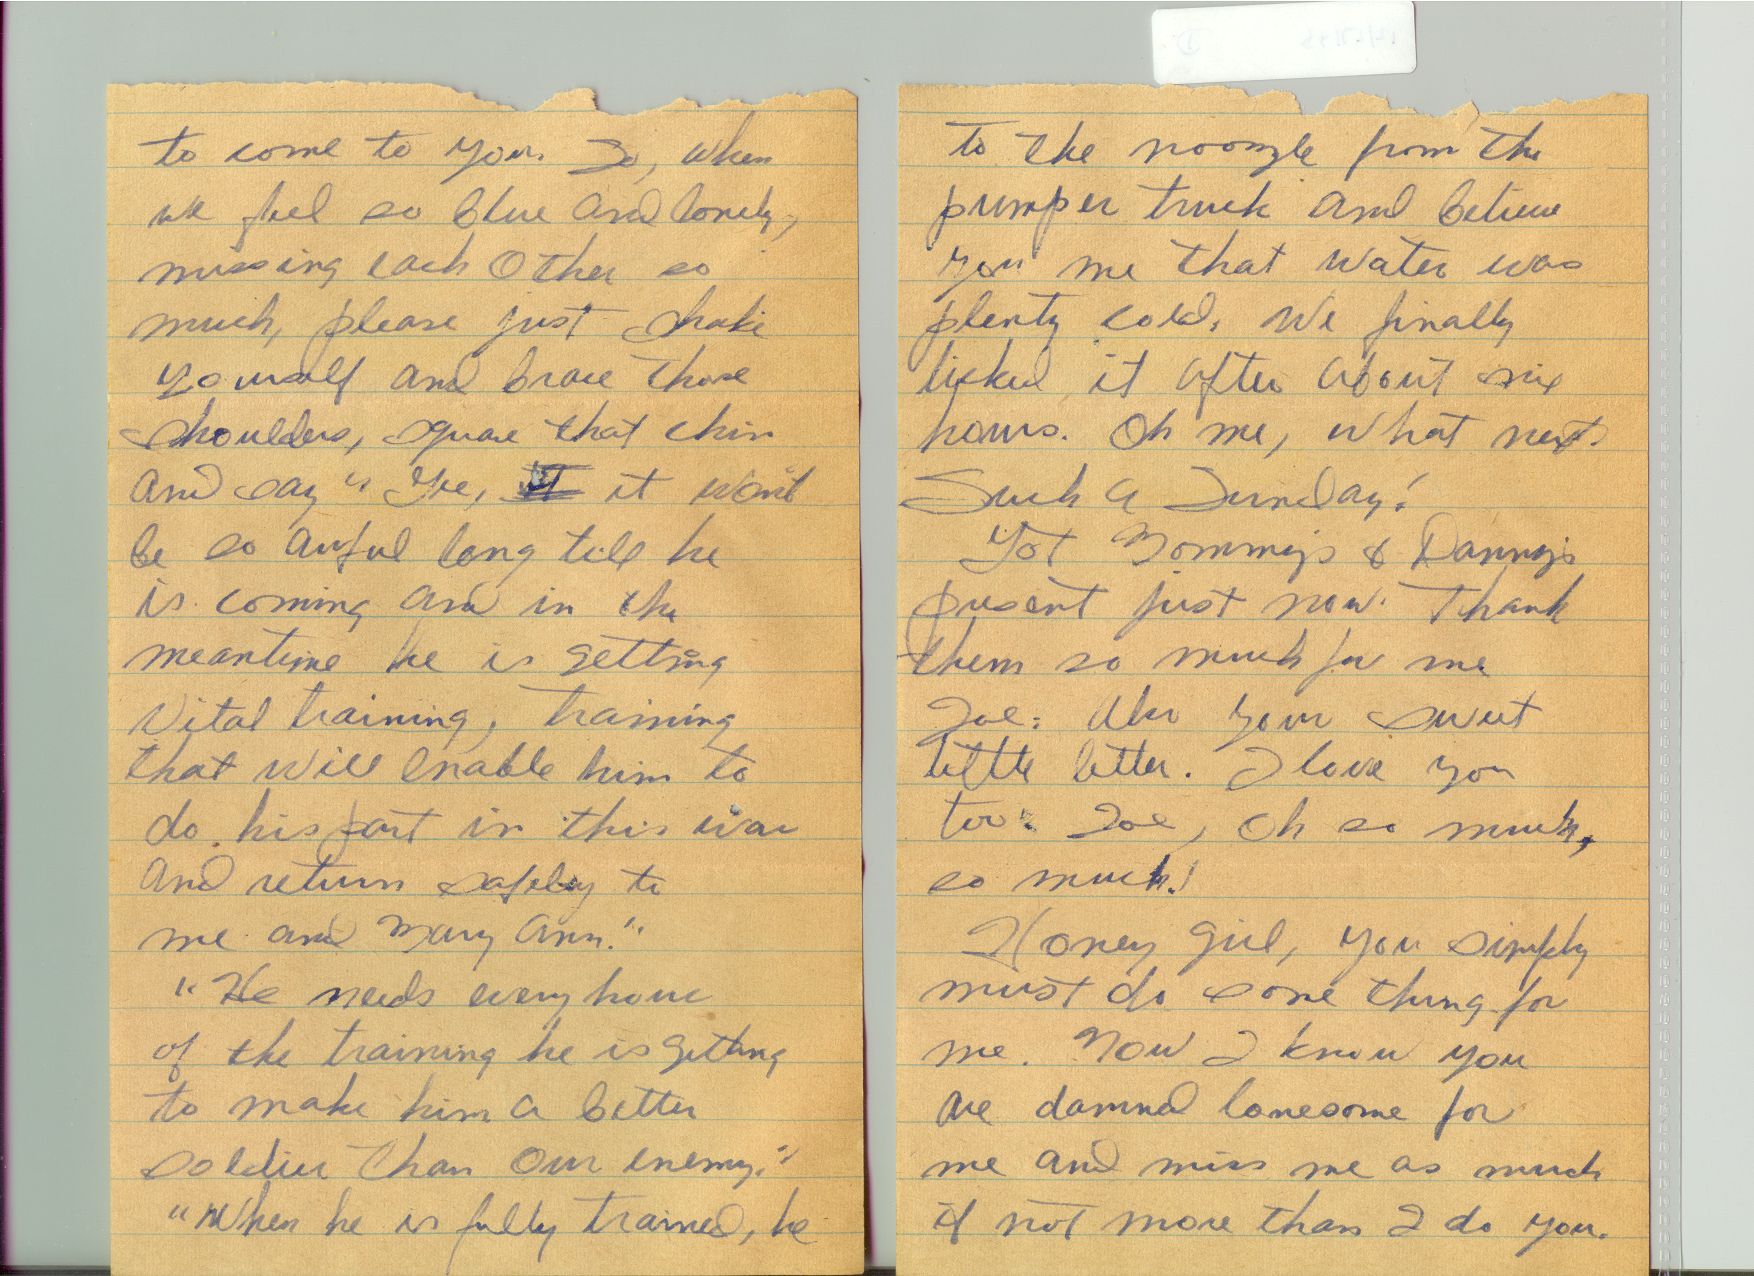 to come to you. So, when
we feel so blue and lonely,
missing each other so
much, please just shake
yourself and brace those
shoulders, square that chin
and say "Gee, it won't
be so awful long till he
is coming and in the
meantime he is getting
vital training, training
that will enable him to
do his part in this war
and return safely to
me and Mary Ann."
"He needs every hour
of the training he is getting
to make him a better
soldier than our enemy."
"When he is fully trained, he
to the noozle from the
pumper truck and believe
you me that water was
plenty cold. We finally
licked it after about six
hours. Oh me, what next.
Such a Sunday!
Got Mommy's & Danny's
present just now. Thank
them so much for me
Zoe. Also your sweet
little letter. I love you
too. Zoe, oh so much,
so much!
Honey girl, you simply
must do some thing for
me. Now I know you
are damned lonesome for
me and miss me as much
if not more than I do you.